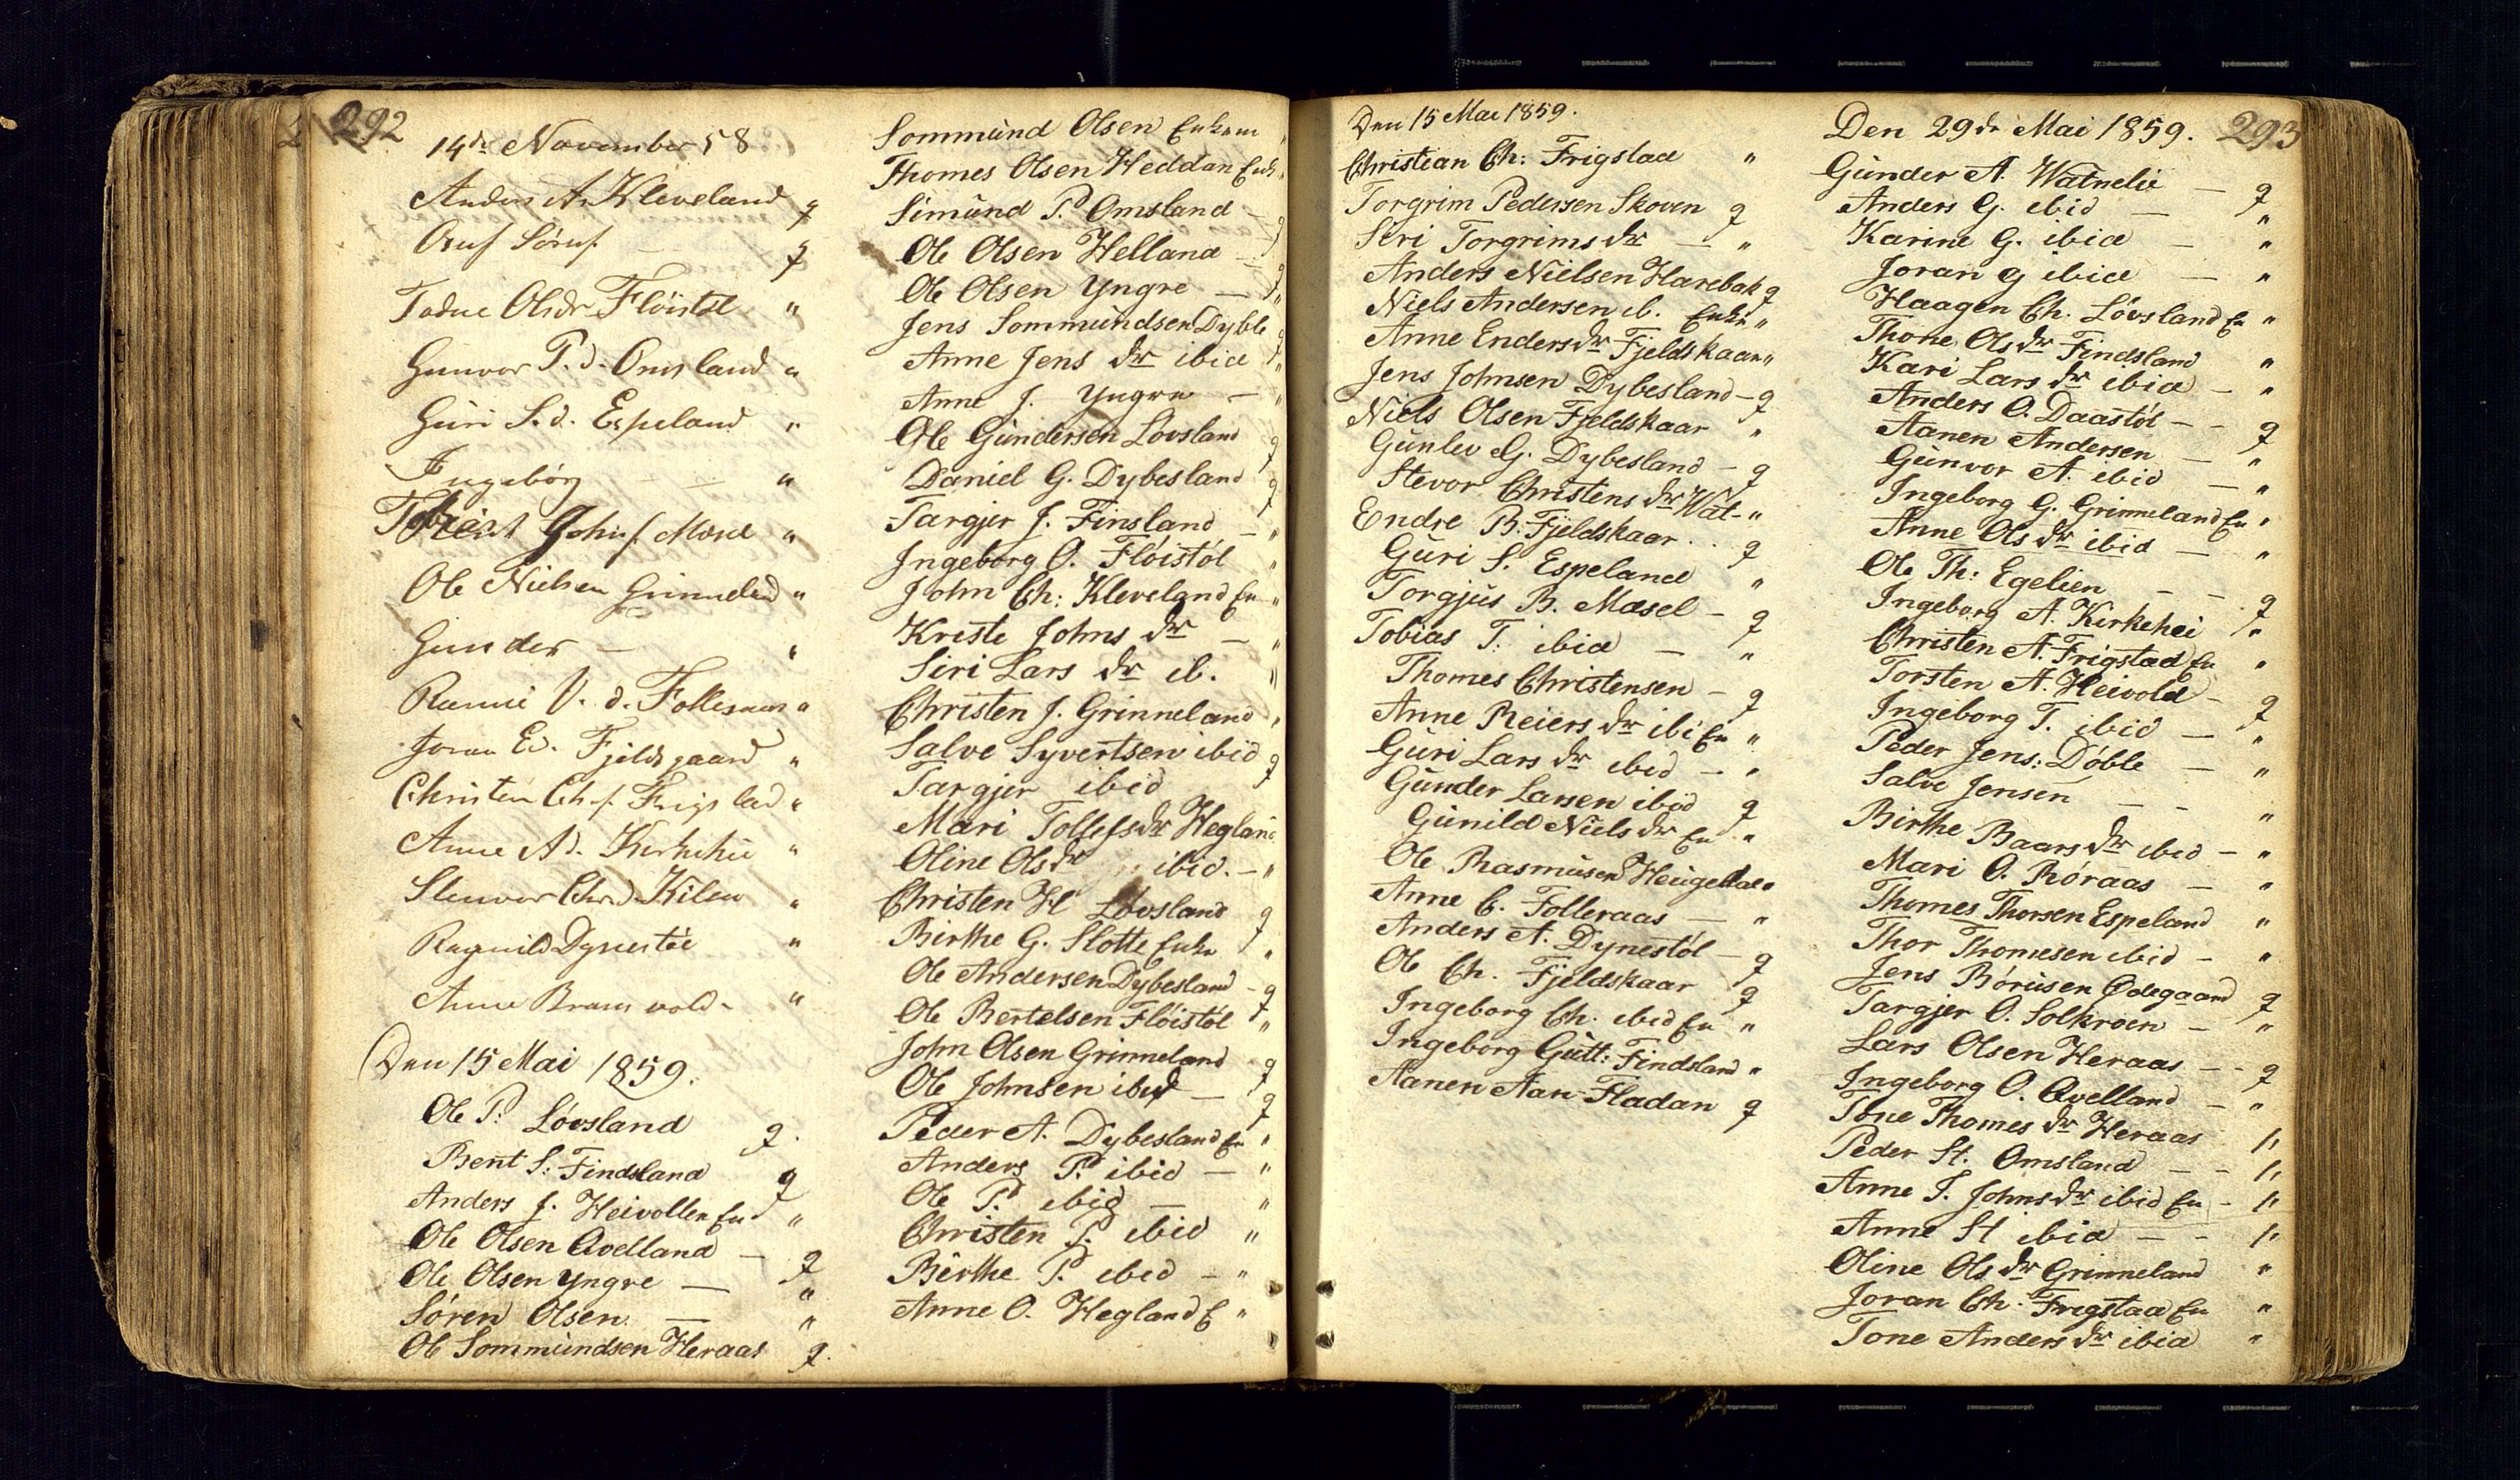 292
14de November 58
Anders A. Kleveland g
Oluf Sørus. — g
Todne Olsdr Fløistøl "
Gunvor P. d. Omsland "
Guri S. d. Espeland "
Ingebörg — — "
Johns. Mosel "
Ole Nielsen Grinneland "
Gunder — "
V. d. Folleraas "
Joran Ed. Fjeldsgaard "
Christen Ch. s. Frigstad "
Anne Ad. Kirkehei "
Stenvor Chr. d. Kilen "
Ragnild Dynestøl "
Anne Brams vold - "
Den 15 Mai 1859.
Ole P. Løvsland g.
Bent S: Findsland g
Anders J. Heivollen En "
Ole Olsen Qvelland — g
Ole Olsen Yngre — "
Søren Olsen. — "
Ole Sommundsen Heraas g.
Sommund Olsen Enkem "
Thomes Olsen Heddan Enk "
Simund P. Omsland — g
Ole Olsen Helland — g
Ole Olsen Yngre — "
Jens Sommundsen Dyble g
Anne Jens dr ibid "
Anne J. Yngre — "
Ole Gundersen Lovsland g
Daniel G. Dybesland g
Targjer J. Finsland — "
Ingeborg O. Fløistøl "
John Ch: Kleveland En "
Kriste Johns dr — "
Siri Lars dr ib. "
Christen J. Grinneland "
Salve Syvertsen ibid g
Targjer ibid
Mari Tollefsdr Hegland
Oline Olsdr ibid. — "
Christen H Løvsland g
Birthe G. Slotte Enke "
Ole Andersen Dybesland - g
Ole Bertelsen Fløistøl "
John Olsen Grinneland g
Ole Johnsen ibid — g
Peder A. Dybesland En "
Anders P. ibid — "
Ole P. ibid — "
Christen P. ibid "
Birthe P. ibid — "
Anne O. Hegland E "
Den 15 Mai 1859.
Christian Ch: Frigstad "
Torgrim Pedersen Skoven g
Siri Torgrims dr — "
Anders Nielsen Harebak g
Niels Andersen ib. Enke "
Anne Endersdr Fjeldskaar "
Jens Johnsen Dybesland - g
Niels Olsen Fjeldskaar "
Gunlev G. Dybesland - g
Stevor Christens dr Wat- "
Endre B. Fjeldskaar . . g
Guri S. Espeland "
Torgjus B. Mosel - g
Tobias T: ibid — "
Thomes Christensen - g
Anne Reiers dr ibi En "
Guri Lars dr ibid — "
Gunder Larsen ibid g
Gunild Niels dr En "
Ole Rasmusen "
Anne C. Folleraas — "
Anders A. Dynestöl - g
Ole Ch. Fjeldskaar g
Ingeborg Ch. ibid En "
Ingeborg Gutt: Findsland "
Aanen Aan- Fladan g
Den 29de Mai 1859. 293
Gunder A. Watnelie — g
Anders G. ibid — "
Karine G. ibid — "
Joran G ibid — "
Haagen Ch. Løvsland En "
Thone Ols dr Findsland "
Kari Lars dr ibid — "
Anders O. Daastøl — - g
Aanen Andersen — "
Gunvor A. ibid — "
Ingeborg G. Grinneland En "
Anne Ols dr ibid — "
Ole Th: Egelien - - g
Ingeborg A. Kirkehei "
Christen A. Frigstad En "
Torsten A. Heivold - g
Ingeborg T. ibid — "
Peder Jens: Døble — "
Salve Jensen - - "
Birthe Baars dr ibid — "
Mari O. Røraas — "
Thomes Thorsen Espeland "
Thor Thomesen ibid - "
Jens Børusen Ødegaard g
Targjer O. Solkroen — "
Lars Olsen Heraas - - g
Ingeborg O. Qvelland — "
Tone Thomes dr Heraas "
Peder St. Omsland — - "
Anne T. Johnsdr ibid En - "
Anne St ibid — - "
Oline Ols dr Grinneland "
Joran Ch. Frigstad En "
Tone Anders dr ibid "